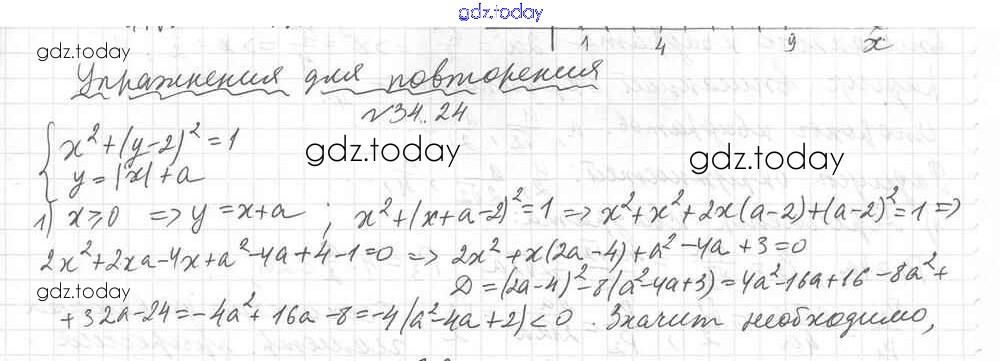 gdz.today
1 4 9 x
gdz.today
Упражнения для повторения
№34.24
{ x² + (y-2)² = 1
gdz.today gdz.today
y = |x| + a
1) x ≥ 0 => y = x+a ; x² + (x+a-2)² = 1 => x² + x² + 2x(a-2) + (a-2)² = 1 =>
2x² + 2xa - 4x + a² - 4a + 4 - 1 = 0 => 2x² + x(2a-4) + a² - 4a + 3 = 0
gdz.today
D = (2a-4)² - 8(a² - 4a + 3) = 4a² - 16a + 16 - 8a² +
+ 32a - 24 = -4a² + 16a - 8 = -4(a² - 4a + 2) < 0 . Значит необходимо,